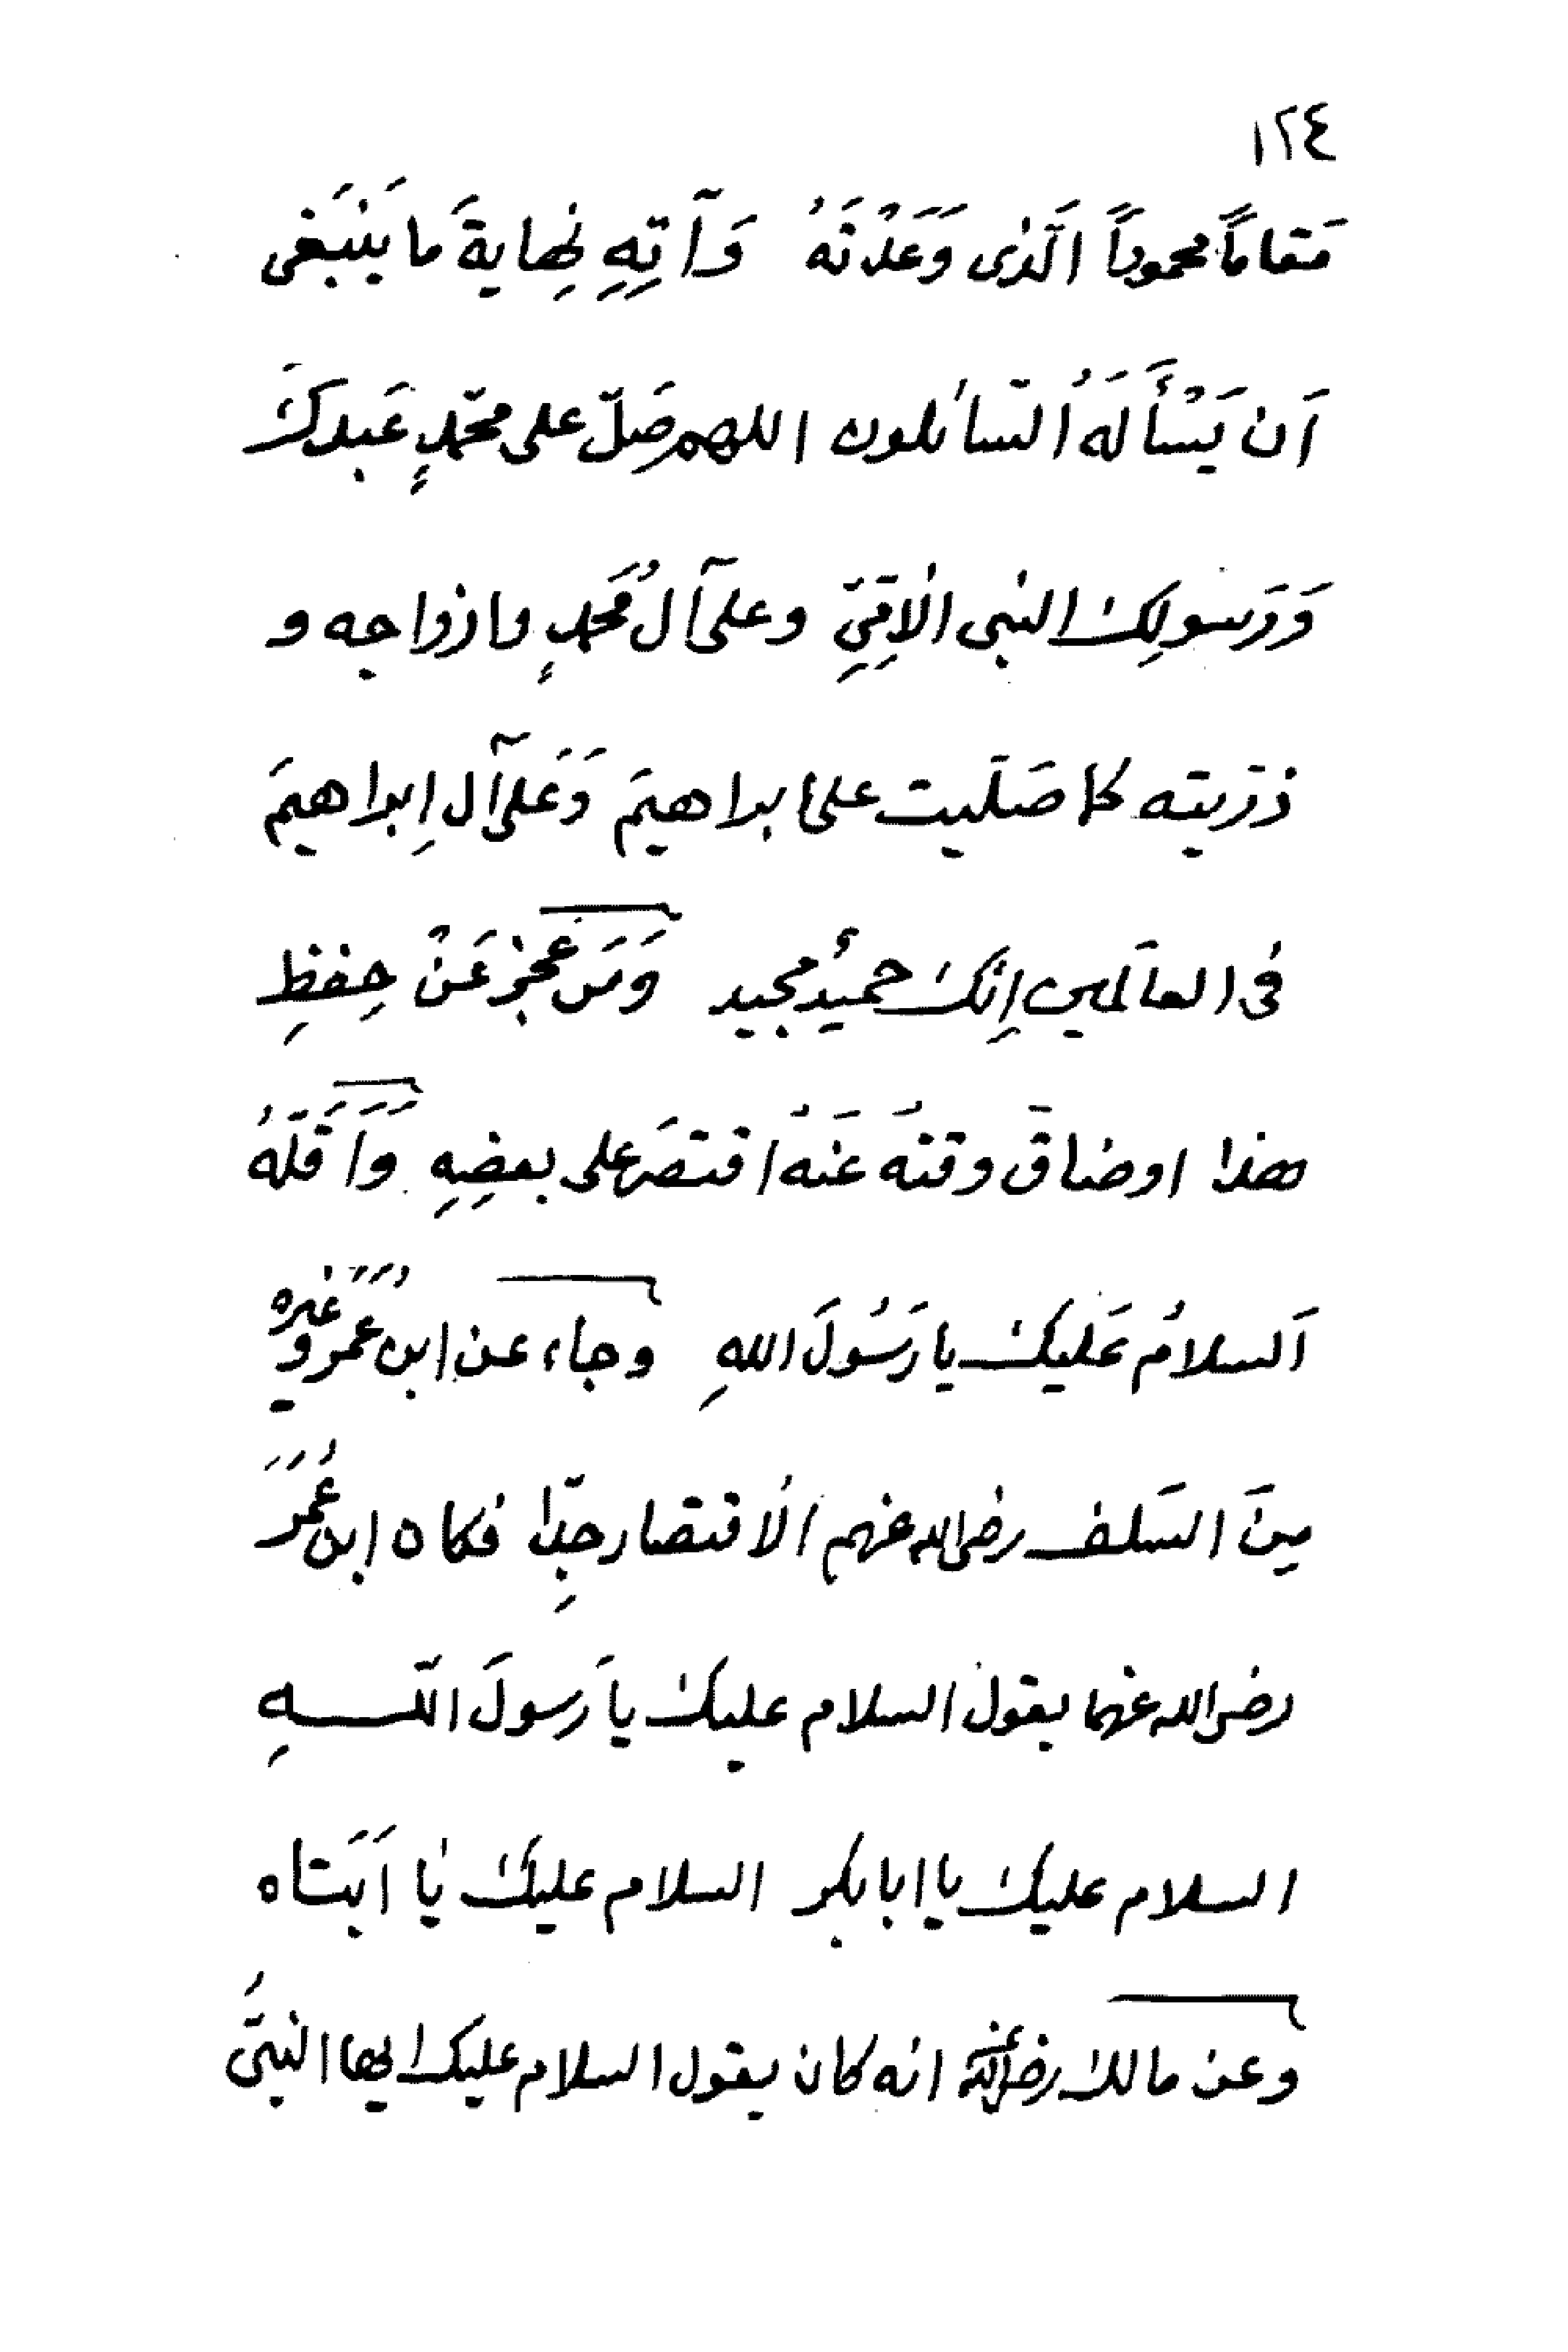 ١٢٤
مَقاماً محموداً الَّذى وَعَدْتَهُ وَآتِهِ نِهايةَ ما يَنبَغى
اَن يَسْأَلَهُ السّائلون اللهم صَلِّ على محمّدٍ عَبدكَ
وَرَسولِك النبى الامِّيِّ وعلى آل مُحَمدٍ وازواجه و
ذرّيته كما صَلّيت على ابراهيمَ وَعَلى آل اِبراهيمَ
فى العالَمين اِنّكَ حميدٌ مجيد وَمَن عَجزَ عَنْ حِفظِ
هذا اوضاقَ وقتهُ عَنهُ اقتصَر على بعضِهِ وَاَقَلّهُ
اَلسلامُ عَليكَ يا رَسُولَ اللهِ وجاء عن ابن عُمَرَ وغيره
مِنَ السَلف رضى الله عنهم الاقتصار جِدّا فكان ابن عُمَرَ
رضى الله عنهما يقول السلام عليك يا رَسولَ اللّــــهِ
السلام عليك يا ابا بكر السلام عليكَ يا اَبَتاه
وعن مالك رضى الله عنه انه كان يقول السلام عليك ايها النبىُّ